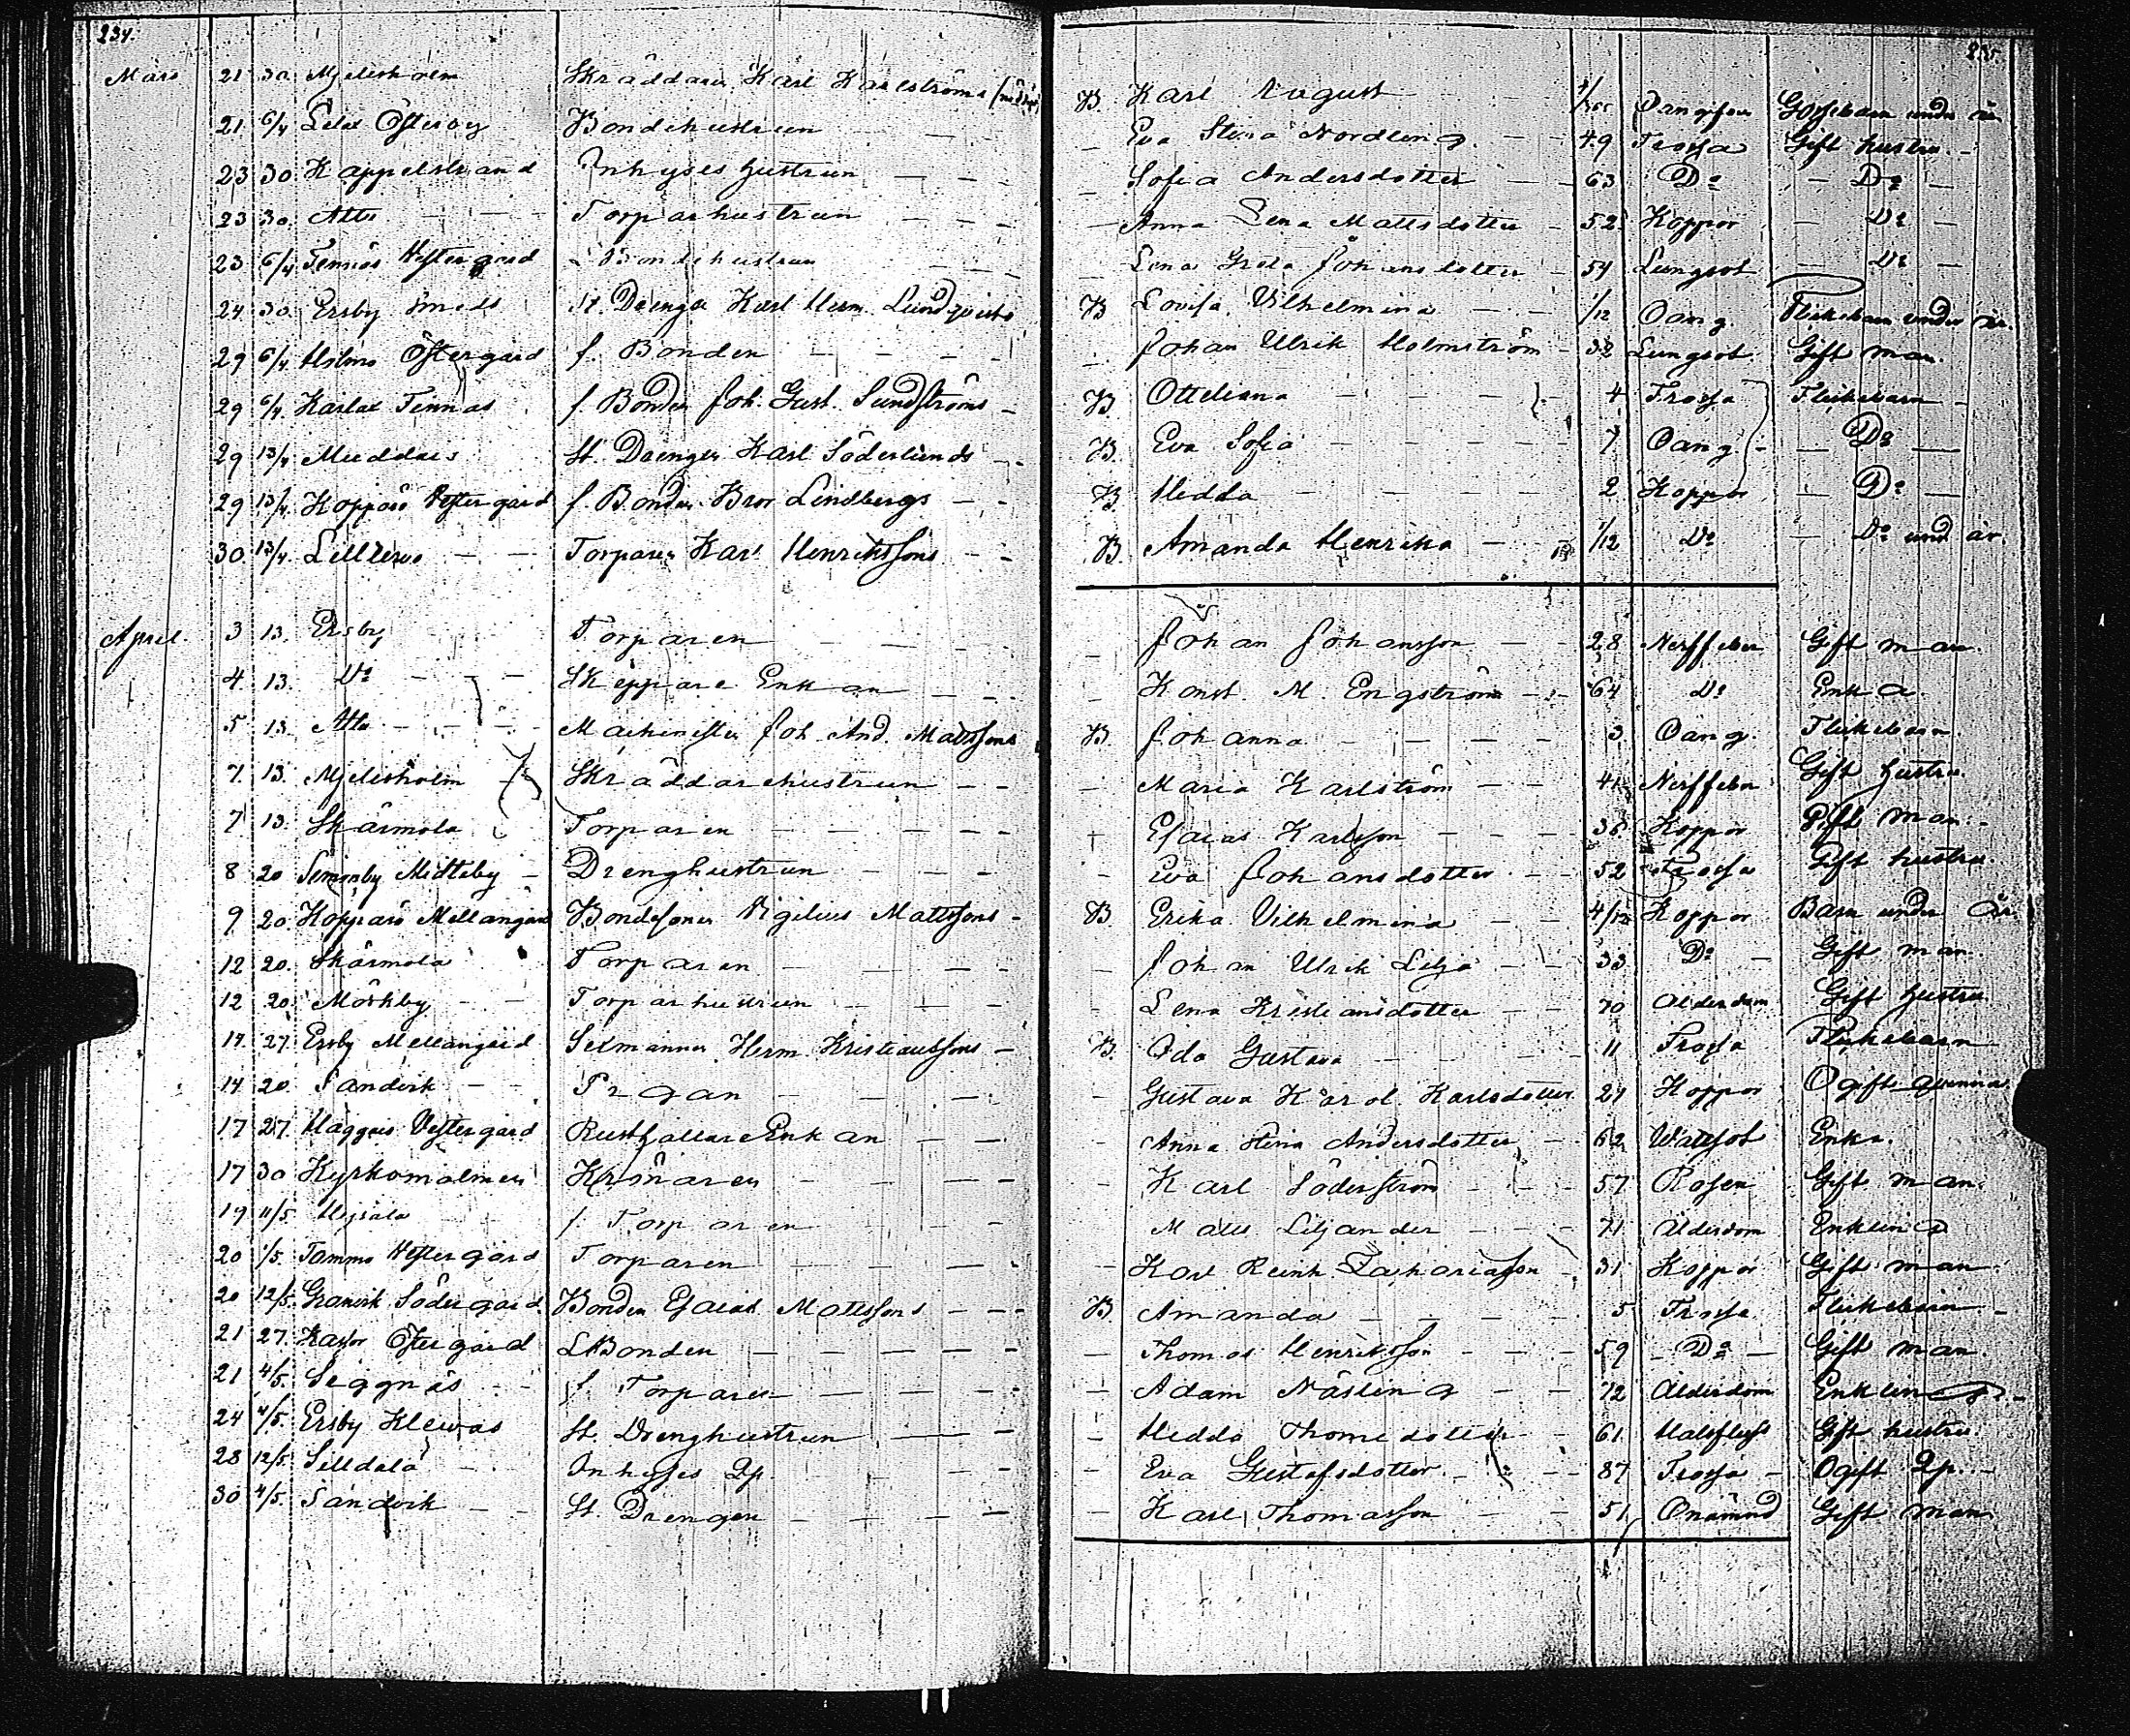 234.
235.
Mars 21 30 Mjelisholm Skräddaren Karl Karlströms B. Karl August 1/365 Gossebarn under år
21 6/4 Österby Bondehustrun Eva Stina Nordling 49 Trossa Gift hustru
23 30 Kappelstrand Inhyses hustrun Sofia Andersdotter 63 Do Do
23 30. Torparhustrun Anna Lena Mattsdotter 52 Koppor Do
23 6/4 Tennäs Westergård Bondehustrun Lena Greta Johansdotter 54 Lungsot Do
24 30 Ersby Smeds St. Drengen Karl Herm. Lundqvists B Lovisa Vilhelmina 1/12 Oang. Flickebarn under år.
29 6/4 Östergård f. Bonden Johan Ulrik Holmström 32 Lungsot Gift man
29 6/4 Tennäs f. Bonden Joh. Gust. Sundströms B Otteliana 4 Trossa Flickebarn
29 13/4 Muddais St. Drengen Karl Söderlunds B. Eva Sofia 7 Oang Do
29 13/4 Koppars Westergård f. Bonden Bror Lindbergs B Hedda 2 Koppor Do
30 13/4 Torparen Karl Henrikssons B. Amanda Henrika 1/12 Do Do und. år.
April. 3 13. Ersby Torparen Johan Johansson 28 Nerffeber Gift man
4 13. Do Skeppare Enkan Konst. M. Engström 64 Do Enka
5 13. Machinisten Joh. And. Mattssons B Johanna 3 Oang. Flickebarn
7 13. Mjelisholm Skräddarehustrun Maria Karlström 41 Nerffeber Gift hustru
7 13 Skärmola Torparen Esaias Karlsson 38 Koppor Gift man
8 20 Simonby Mitteby Drenghustrun Eva Johansdotter 52 Trossa Gift hustru
9 20. Mellangård Bondesonen Vigilius Mattssons B Erika Vilhelmina 4/12 Koppor Barn under år
12 20. Skärmola Torparen Johan Ulrik Lilja 33 Do Gift man
12 20. Mörkby Torparhustrun Lena Kristiansdotter 70 Ålderdom Gift hustru
14 27. Ersby Mellangård Sexmannen Herm. Kristianssons B. Ida Gustava 11 Trossa Flickebarn
14 20. Sandvik Pigan Gustava Karol. Karlsdotter 24 Koppor Ogift qvinna
17 27. Häggnäs Westergård Rusthållare Enkan Anna Stina Andersdotter 62 Wattsot Enka.
17 30 Kyrkomalmen Krönaren Karl Söderström 57 Rosen Gift man
19 11/5 f. Torparen Matts Liljander 71 Ålderdom Enkling
20 1/5. Tammo Westergård Torparen Karl Reinh. Zachariasson 31 Koppor Gift man
20 12/5. Södergård Bonden Esaias Mattssons B Amanda 5 Trossa Flickebarn
21 27. Östergård Bonden Thomas Henriksson 59 Do Gift man
21 4/5. Seggnäs f. Torparen Adam Näsling 72 Ålderdom Enkling
24 4/5. Ersby Klewas St. Drenghustrun Hedda Thomedotter 61 Halsflyss Gift hustru
28 12/5. Silldala Inhyses Qp. Eva Gustafsdotter 87 Trossa Ogift Qp.
30 4/5. Sandvik St. Drengen Karl Thomasson 51 Onämnd Gift man